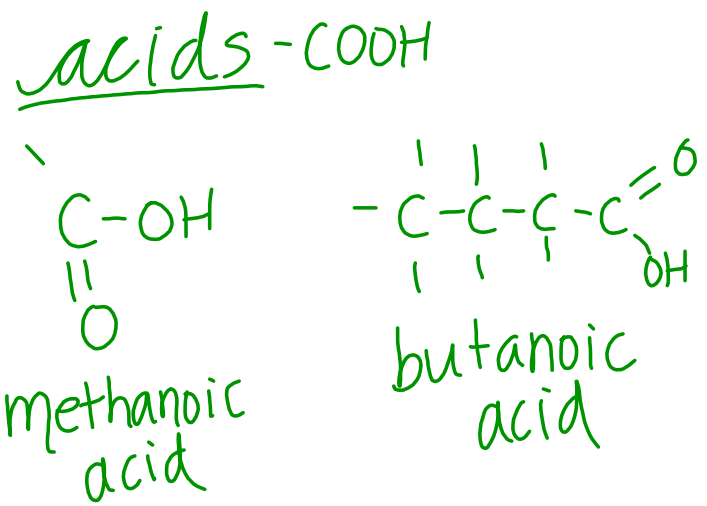 acids - COOH
C - OH
O
methanoic
acid
- C - C - C - C
O
OH
butanoic
acid